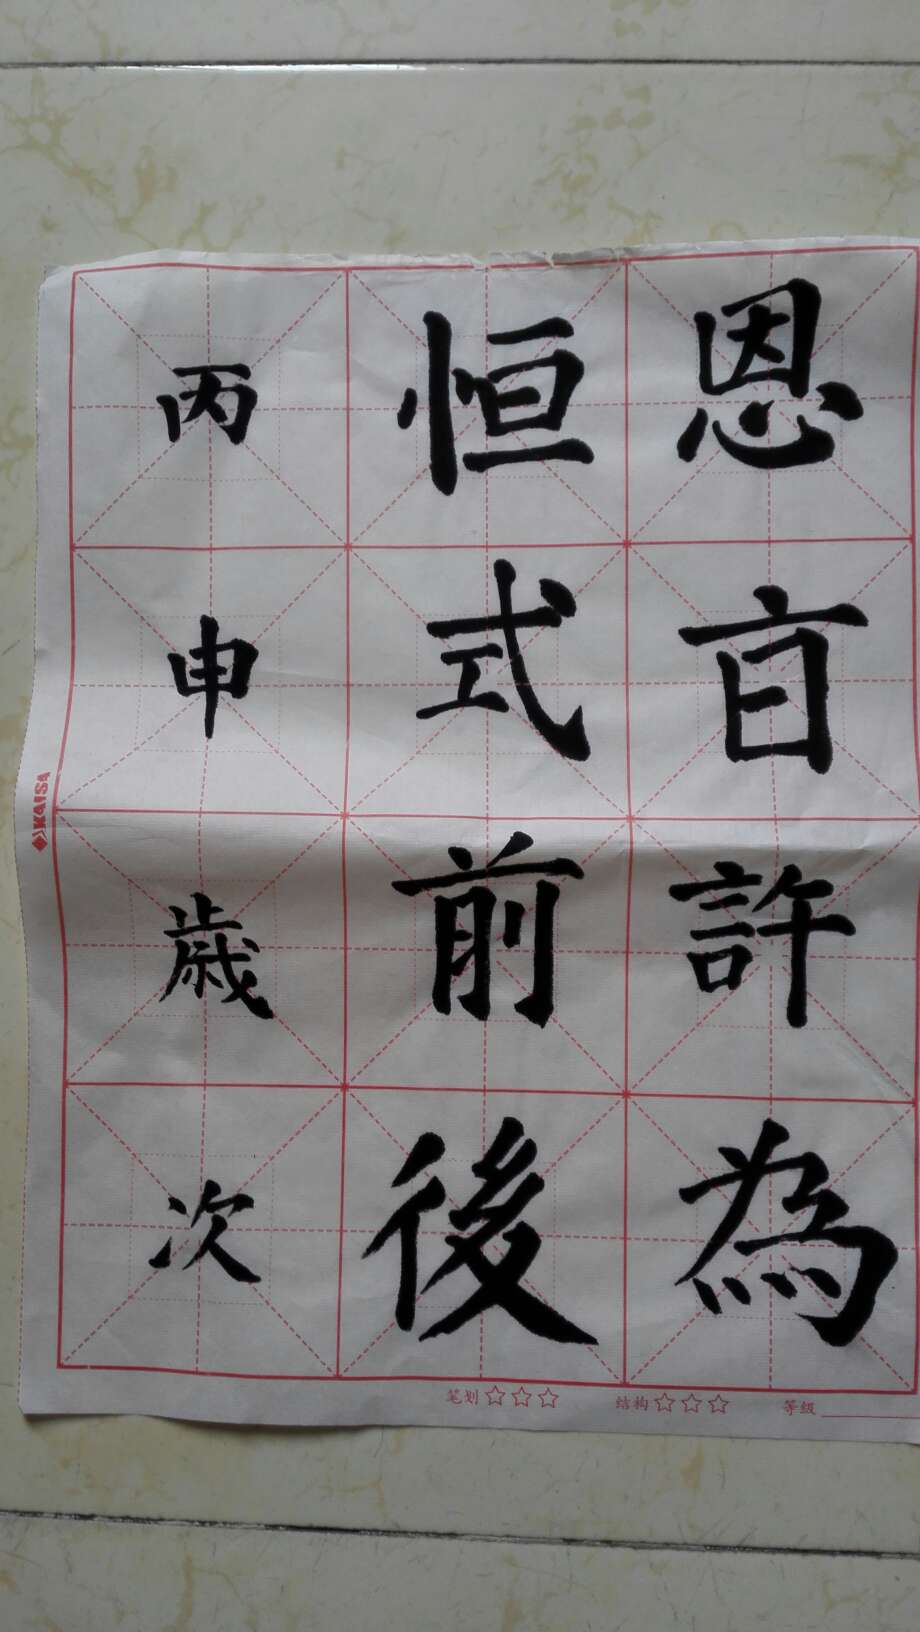 恩旨許為
恒式前後
丙申歲次
KAISA
笔划☆☆☆ 结构☆☆☆ 等级